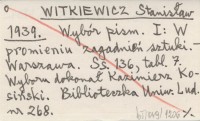 WITKIEWICZ Stanisław
1939. Wybór pism. I: W
promieniu zagadnień sztuki.-
Warszawa. Ss. 136, tabl. 7.
Wyboru dokonał Kazimierz Ko-
siński. Biblioteczka Uniw. Lud.
nr 268.